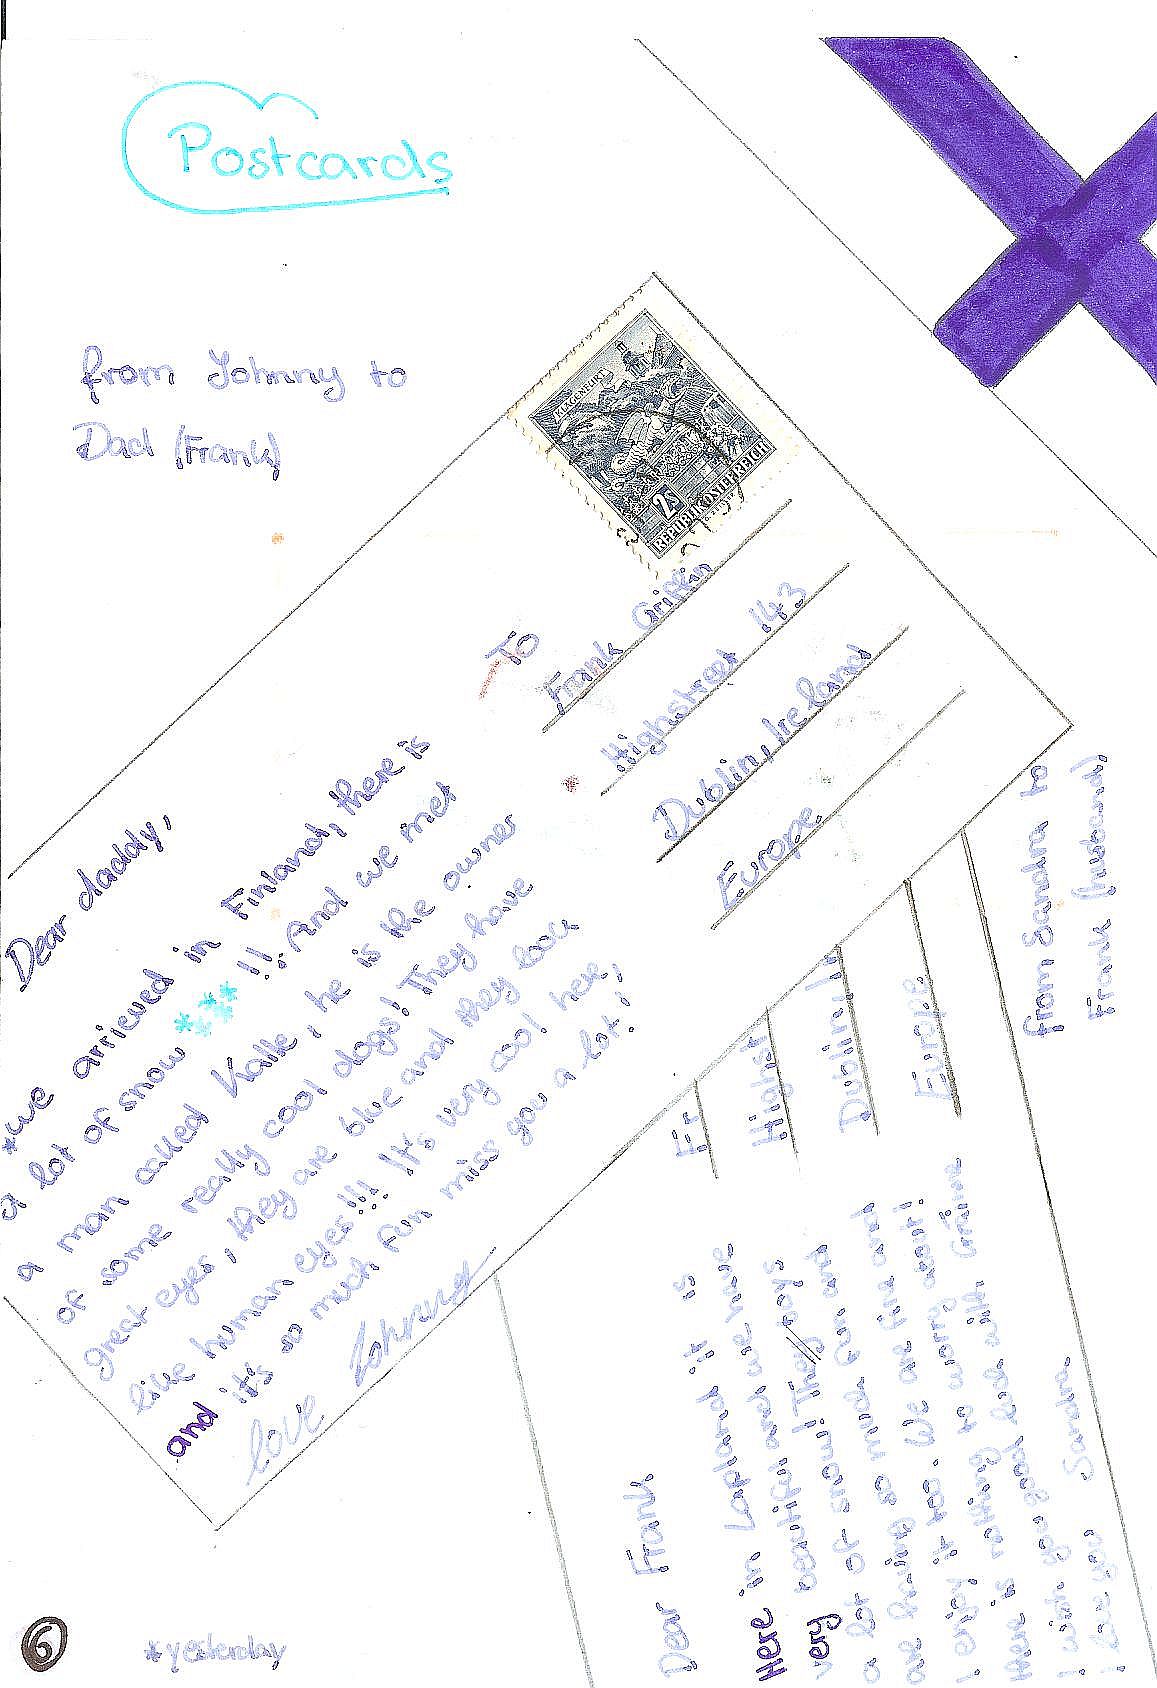 Postcards
from Johnny to
Dad (Frank)
KLAGENFURT
2s
REPUBLIK ÖSTERREICH
To
Frank Griffin
Highstreet 143
Dublin, Ireland
Europe
Dear daddy,
*we arrieved in Finland, there is
a lot of snow !!! And we met
a man called Kalle, he is the owner
of some really cool dogs! They have
great eyes, they are blue and they look
like human eyes!!! It's very cool here,
and it's so much fun miss you a lot!
love Johnny
from Sandra to
Frank (husband)
Fr
Highst
Dublin, I
Europe
Dear Frank
Here in Lapland it is
very beautiful and we have
a lot of snow! The boys
are having so much fun and
I enjoy it too. We are fine and
there is nothing to worry about!
I wish you good luck with
I love you Sandra
6
*yesterday